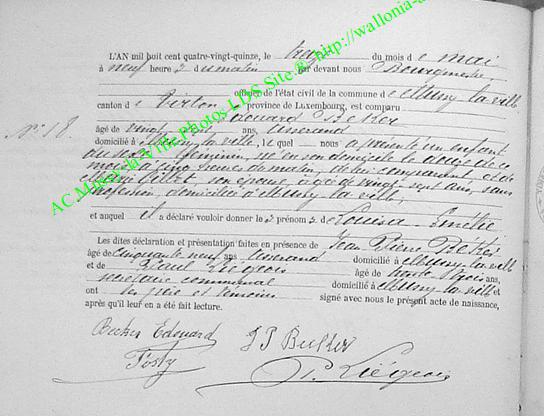 L'AN mil huit cent quatre-vingt-quinze, le treize du mois de mai
à neuf heures du matin par devant nous Bourgmestre,
officier de l'état civil de la commune de Mussy la ville
canton de Virton province de Luxembourg, est comparu
Edouard Becker
N° 18.
âgé de vingt ans,
domicilié à Mussy la ville, lequel nous a présenté un enfant
du sexe féminin, né en son domicile le douze de ce
mois à cinq heures du matin, de lui comparant et de
Marie son épouse, âgée de vingt sept ans, sans
profession, domiciliée à Mussy la ville,
et auquel il a déclaré vouloir donner les prénoms de Louisa Emélie
Les dites déclaration et présentation faites en présence de Jean Pierre Becker
âgé de cinquante neuf ans, domicilié à Mussy la ville
et de Paul Liégeois âgé de trente trois ans,
secrétaire communal domicilié à Mussy la ville
ont les père et témoins signé avec nous le présent acte de naissance,
après qu'il leur en a été fait lecture.
Becker Edouard J P Becker
Fosty P. Liégeois
AC Mussy-la-Ville Photos LDS Site @ http://wallonia-